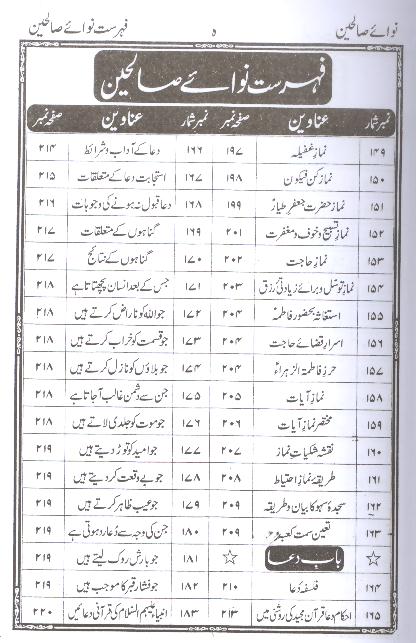 نوائے صالحین ۵ فہرست نوائے صالحین
فہرست نوائے صالحین
نمبر شمار عناوین صفحہ نمبر نمبر شمار عناوین صفحہ نمبر
۱۴۹ نماز غفیلہ ۱۹۷ ۱۶۶ دعا کے آداب و شرائط ۲۱۴
۱۵۰ نماز کن فیکون ۱۹۸ ۱۶۷ استجابت دعا کے متعلقات ۲۱۵
۱۵۱ نماز حضرت جعفر طیارؑ ۱۹۹ ۱۶۸ دعا قبول نہ ہونے کی وجوہات ۲۱۶
۱۵۲ نماز تسبیح و خوف و مغفرت ۲۰۱ ۱۶۹ گناہوں کے متعلقات ۲۱۷
۱۵۳ نماز حاجت ۲۰۲ ۱۷۰ گناہوں کے نتائج ۲۱۷
۱۵۴ نماز توسل و برائے زیادتی رزق ۲۰۳ ۱۷۱ جس کے بعد انسان پچھتاتا ہے ۲۱۸
۱۵۵ استغاثہ بحضور فاطمہؑ ۲۰۴ ۱۷۲ جو اللہ کو ناراض کرتے ہیں ۲۱۸
۱۵۶ اسرار قضائے حاجت ۲۰۴ ۱۷۳ جو قسمت کو خراب کرتے ہیں ۲۱۸
۱۵۷ حرز فاطمۃ الزہراءؑ ۲۰۴ ۱۷۴ جو بلاؤں کو نازل کرتے ہیں ۲۱۸
۱۵۸ نماز آیات ۲۰۵ ۱۷۵ جن سے دشمن غالب آجاتا ہے ۲۱۸
۱۵۹ مختصر نماز آیات ۲۰۶ ۱۷۶ جو موت کو جلدی لاتے ہیں ۲۱۸
۱۶۰ نقشہ شکیات نماز ۲۰۷ ۱۷۷ جو امید کو توڑ دیتے ہیں ۲۱۹
۱۶۱ طریقہ نماز احتیاط ۲۰۸ ۱۷۸ جو بے وقعت کر دیتے ہیں ۲۱۹
۱۶۲ سجدہ سہو کا بیان و طریقہ ۲۰۹ ۱۷۹ جو عیب ظاہر کرتے ہیں ۲۱۹
۱۶۳ تعین سمت کعبہ ۲۰۹ ۱۸۰ جن کی وجہ سے دُعا رد ہوتی ہے ۲۱۹
☆ باب دعا ☆ ۱۸۱ جو بارش روک لیتے ہیں ۲۱۹
۱۶۴ فلسفہ دُعا ۲۱۰ ۱۸۲ جو فشار قبر کا موجب ہیں ۲۱۹
۱۶۵ احکام دعا قرآن مجید کی روشنی میں ۲۱۳ ۱۸۳ انبیا علیہم السلام کی قرآنی دعائیں ۲۲۰